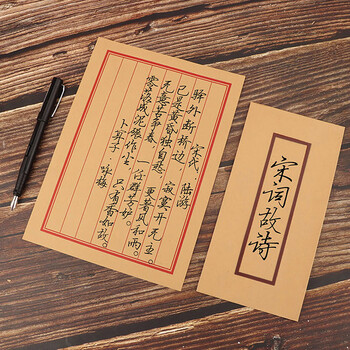 宋代：陆游
驿外断桥边，寂寞开无主。
已是黄昏独自愁，更著风和雨。
无意苦争春，一任群芳妒。
零落成泥碾作尘，只有香如故。
卜算子·咏梅
宋词故诗